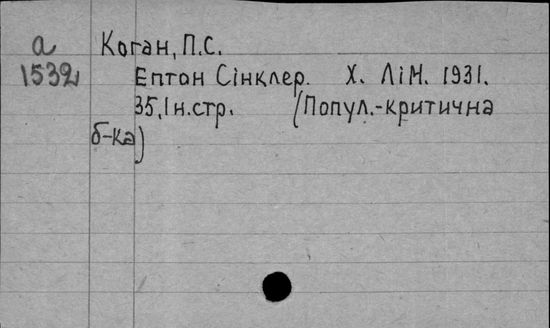 а Коган, П.С.
1532 Ептон Сінклер. Х. ЛіМ. 1931.
35,1н.стр. (Попул.-критична
б-ка)